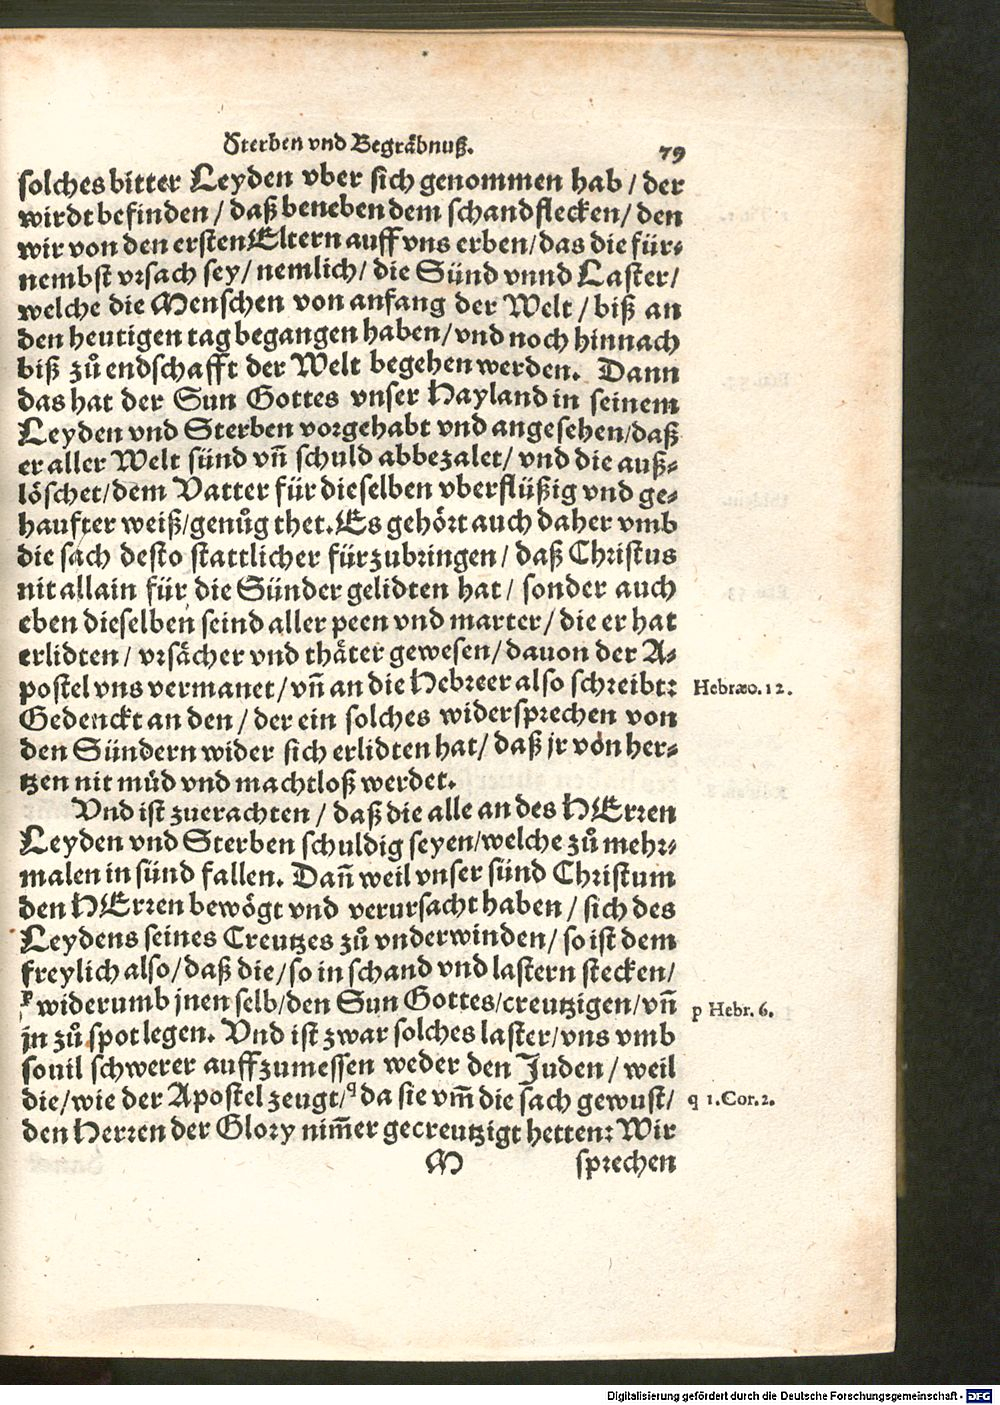 Sterben vnd Begräbnuß. 79
solches bitter Leyden vber sich genommen hab / der
wirdt befinden / daß beneben dem schandflecken / den
wir von den ersten Eltern auff vns erben / das die für⸗
nembst vrsach sey / nemlich / die Sünd vnnd Laster /
welche die Menschen von anfang der Welt / biß an
den heutigen tag begangen haben / vnd noch hinnach
biß zů endschafft der Welt begehen werden. Dann
das hat der Sun Gottes vnser Hayland in seinem
Leyden vnd Sterben vorgehabt vnd angesehen / daß
er aller Welt sünd vn̄ schuld abbezalet / vnd die auß⸗
löschet / dem Vatter für dieselben vberflüßig vnd ge⸗
haufter weiß / genůg thet. Es gehört auch daher vmb
die sach desto stattlicher fürzubringen / daß Christus
nit allain für die Sünder gelidten hat / sonder auch
eben dieselben seind aller peen vnd marter / die er hat
erlidten / vrsächer vnd thäter gewesen / dauon der A⸗
postel vns vermanet / vn̄ an die Hebreer also schreibt:
Hebræo. 12.
Gedenckt an den / der ein solches widersprechen von
den Sündern wider sich erlidten hat / daß jr von her⸗
tzen nit müd vnd machtloß werdet.
Vnd ist zuerachten / daß die alle an des HErren
Leyden vnd Sterben schuldig seyen / welche zů mehr⸗
malen in sünd fallen. Dan̄ weil vnser sünd Christum
den HErren bewögt vnd verursacht haben / sich des
Leydens seines Creutzes zů vnderwinden / so ist dem
freylich also / daß die / so in schand vnd lastern stecken /
p widerumb jnen selb / den Sun Gottes / creutzigen / vn̄
p Hebr. 6.
jn zů spot legen. Vnd ist zwar solches laster / vns vmb
souil schwerer auffzumessen weder den Juden / weil
die / wie der Apostel zeugt / q da sie vm̄ die sach gewust /
q 1. Cor. 2.
den Herren der Glory nim̄er gecreutzigt hetten: Wir
M sprechen
Digitalisierung gefördert durch die Deutsche Forschungsgemeinschaft - DFG